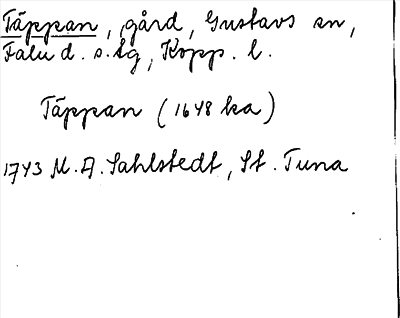 Täppan, gård, Gustavs sn,
Falu d. s. lg, Kopp. l.
Täppan (1648 ka)
1743 M. A. Sahlstedt, St. Tuna